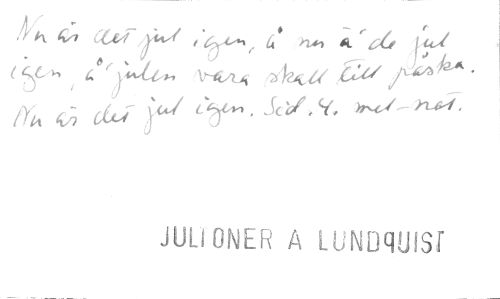 Nu är det jul igen, å nu ä' de jul
igen, å' julen vara skall till påska.
Nu är det jul igen. Sid. 4. mel-not.
JULTONER A LUNDQUIST